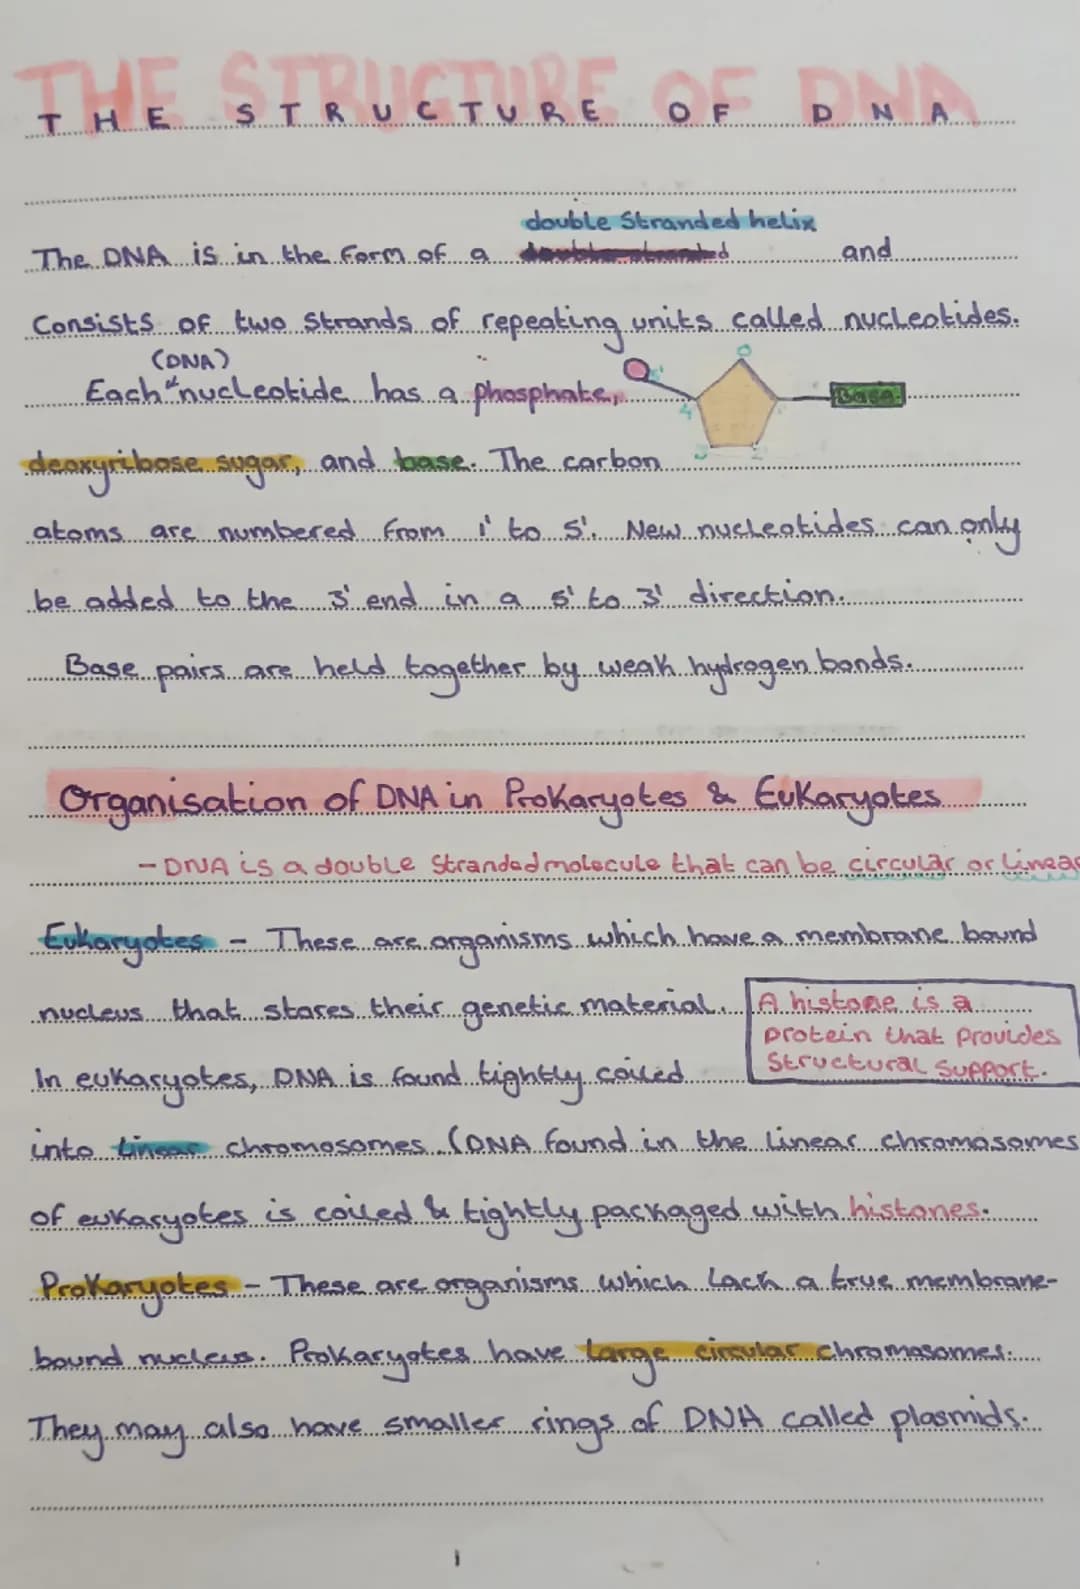 THE STRUCTURE OF DNA
THE STRUCTURE OF DNA
double Stranded helix
The DNA is in the form of a double stranded and
Consists of two strands of repeating units called nucleotides.
(DNA)
Each nucleotide has a phosphate,
5'
O
4'
Base
3'
2'
deoxyribose sugar, and base. The carbon
atoms are numbered from 1' to 5'. New nucleotides can only
be added to the 3' end in a 5' to 3' direction.
Base pairs are held together by weak hydrogen bonds.
Organisation of DNA in Prokaryotes & Eukaryotes
- DNA is a double Stranded molecule that can be circular or linear
Eukaryotes - These are organisms which have a membrane bound
nucleus that stores their genetic material.
A histone is a
protein that provides
Structural Support.
In eukaryotes, DNA is found tightly coiled
into linear chromosomes. (DNA found in the linear chromosomes
of eukaryotes is coiled & tightly packaged with histones.
Prokaryotes - These are organisms which lack a true membrane-
bound nucleus. Prokaryotes have large circular chromosomes.
They may also have smaller rings of DNA called plasmids.
1